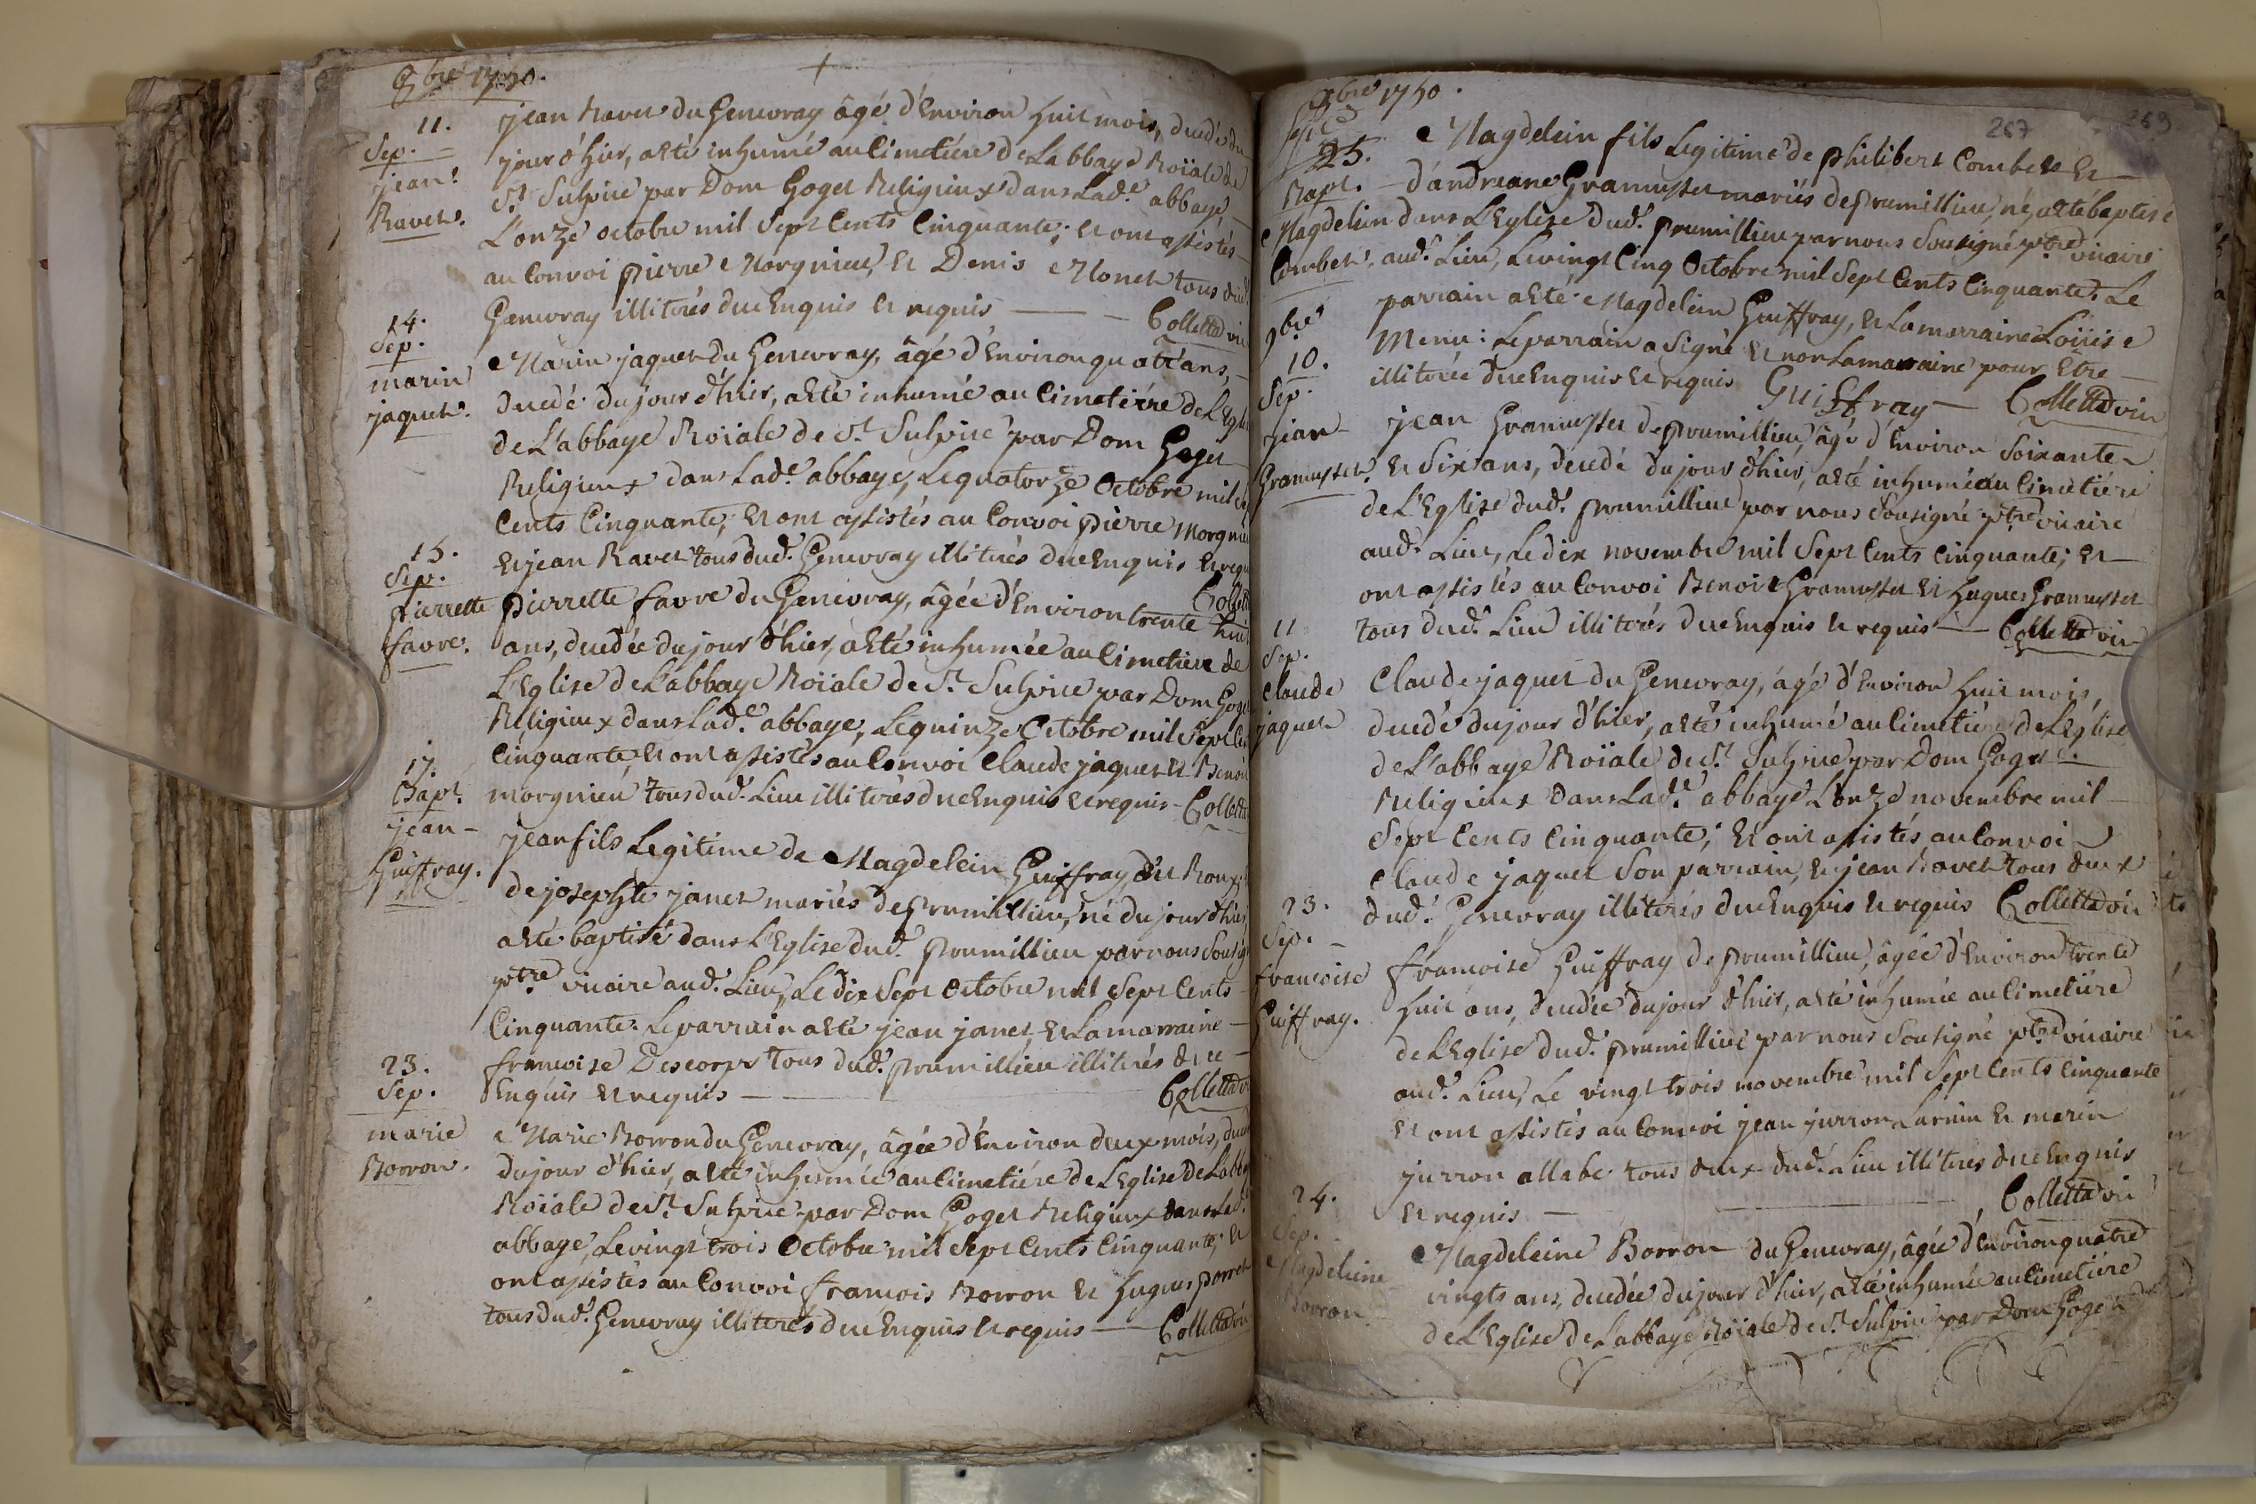 8bre 1750.
11.
Sep.
jean
Ravet.
jean Ravet du Genevray âgé d'Environ huit mois, decedé du
jour d'hier, aeté inhumé au Cimetiére de Labbaye Roïale de
St. Sulpice par Dom Goget Religieux dans Lade. abbaye
L'onze octobre mil Sept Cents Cinquante; et ont assistés
au Convoi pierre Morgnieu, et Denis Monet tous dud.
Genevray illiterés de ce Enquis et requis Colletta vic
14.
Sep.
marin
jaquet.
Marin jaquet du Genevray, âgé d'Environ quatre ans,
decedé du jour d'hier, aeté inhumé au Cimetiére de L'Eglise
de L'abbaye Roïale de St. Sulpice par Dom Goget
Religieux dans Lade. abbaye, Le quatorze Octobre mil
Cents Cinquante; et ont assistés au Convoi pierre Morgnieu
et jean Ravet tous dud. Genevray illiterés de ce Enquis et requis
Colletta
15.
Sep.
pierrette
favre.
pierrette favre du Genevray, âgée d'Environ trente huit
ans, decedée du jour d'hier, aeté inhumée au Cimetiere de
L'Eglise de L'abbaye Roïale de St. Sulpice par Dom Goget
Religieux dans Lade. abbaye, Le quinze Octobre mil Sept Cents
Cinquante, et ont assistés au Convoi Claude jaquet et Benoit
morgnieu tous dud. Lieu illiterés de ce Enquis et requis - Colletta
17.
Bapt.
jean
Guiffray.
jean fils Legitime de Magdelein Guiffray dit Roux, et
de josephte janet mariés de prumillieu, né du jour d'hier
aeté baptisé dans L'Eglise dud. prumillieu par nous Sousigné
ptre vicaire aud. Lieu, Le dix Sept Octobre mil Sept Cents
Cinquante. Le parrain aeté jean janet, et La marraine
francoise Descorps tous dud. prumillieu illiterés de ce
Enquis et requis Colletta vic
23.
Sep.
marie
Borron.
Marie Borron du Genevray, âgée d'Environ deux mois, decedée
du jour d'hier, aeté inhumée au Cimetiére de L'Eglise de Labbaye
Roïale de St. Sulpice par Dom Goget Religieux dans Lade.
abbaye, Le vingt trois Octobre mil Sept Cents Cinquante; et
ont assistés au Convoi francois Borron et hugues porret
tous dud. Genevray illiterés de ce Enquis et requis Colletta vic
8bre 1750.
267
269
25.
Bapt.
Magdelein
Combet.
Magdelein fils Legitime de philibert Combet et
d'andreane Gramusset mariés de prumillieu, né, aeté baptisé
dans L'Eglise dud. prumillieu par nous Sousigné ptre vicaire
aud. Lieu, Le vingt Cinq Octobre mil Sept Cents Cinquante. Le
parrain aeté Magdelein Guiffray, et La marraine Loüise
Menu: Le parrain a Signé et non La marraine pour Etre
illiterée de ce Enquis et requis Guiffray Colletta vic
9bre
10.
Sep.
jean
Gramusset.
jean Gramusset de prumillieu, âgé d'Environ Soixante
et Six ans, decedé du jour d'hier, aeté inhumé au Cimetiére
de L'Eglise dud. prumillieu par nous Sousigné ptre vicaire
aud. Lieu, Le dix novembre mil Sept Cents Cinquante; et
ont assistés au Convoi Benoit Gramusset et hugues Gramusset
tous dud. Lieu illiterés de ce Enquis et requis Colletta vic
11
Sep.
Claude
jaquet
Claude jaquet du Genevray, âgé d'Environ huit mois,
decedé du jour d'hier, aeté inhumé au Cimetiére de L'Eglise
de L'abbaye Roïale de St. Sulpice par Dom Goget
Religieux dans Lade. abbaye L'onze novembre mil
Sept Cents Cinquante; et ont assistés au Convoi
Claude jaquet Son parrain, et jean Ravet tous deux
dud. Genevray illiterés de ce Enquis et requis Colletta vic
23.
Sep.
francoise
Guiffray.
francoise Guiffray de prumillieu, âgée d'Environ trente
huit ans, decedée du jour d'hier, aeté inhumée au Cimetiére
de L'Eglise dud. prumillieu par nous Sousigné ptre vicaire
aud. Lieu, Le vingt trois novembre mil Sept Cents Cinquante
et ont assistés au Convoi jean jurron Larnin et marin
jurron allabe tous deux dud. Lieu illiterés de ce Enquis
et requis Colletta vic
24.
Sep.
Magdeleine
Borron
Magdeleine Borron du Genevray, âgée d'Environ quatre
vingts ans, decedée du jour d'hier, aeté inhumée au Cimetiére
de L'Eglise de Labbaye Roïale de St. Sulpice par Dom Goget